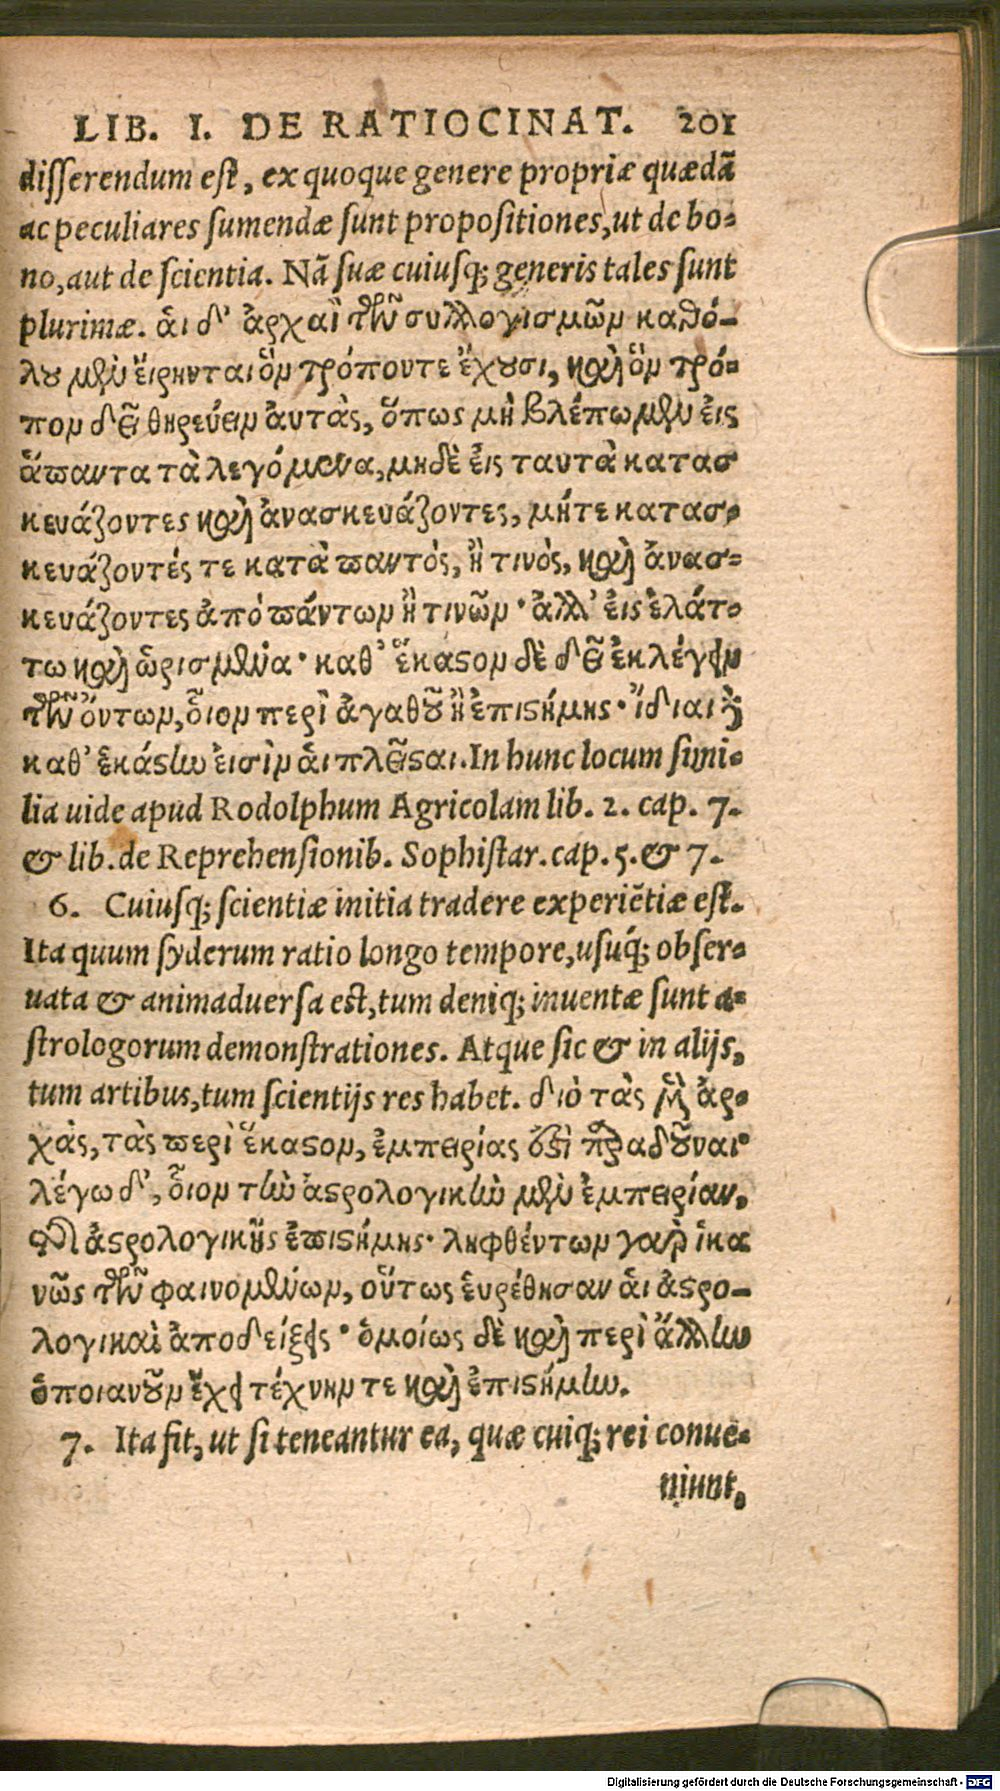 LIB. I. DE RATIOCINAT. 201
disserendum est, ex quoque genere propriæ quædã
ac peculiares sumendæ sunt propositiones, ut de bo-
no, aut de scientia. Nã suæ cuiusq; generis tales sunt
plurimæ. ἁι δ' ἀρχαὶ τῶν συλλογισμῶν καθό-
λου μὲν ἔιρηνται ὃν τρόπον τε ἔχουσι, καὶ ὃν τρό-
πον δεῖ θηρεύειν ἀυτὰς, ὅπως μὴ βλέπωμεν ἐις
ἅπαντα τὰ λεγόμενα, μηδὲ ἐις ταυτὰ κατασ
κευάζοντες καὶ ἀνασκευάζοντες, μήτε κατασ-
κευάζοντές τε κατὰ παντός, ἢ τινός, καὶ ἀνασ-
κευάζοντες ἀπὸ πάντων ἢ τινῶν· ἀλλ' ἐις ἐλάτ-
τω καὶ ὡρισμένα· καθ' ἕκαστον δὲ δεῖ ἐκλέγειν
τῶν ὄντων, ὅιον περὶ ἀγαθοῦ ἢ ἐπιστήμης· ἴδιαι δὲ
καθ' ἑκάστην ἐισὶν ἁι πλεῖσαι. In hunc locum simi-
lia uide apud Rodolphum Agricolam lib. 2. cap. 7.
& lib. de Reprehensionib. Sophistar. cap. 5. & 7.
6. Cuiusq; scientiæ initia tradere experiẽtiæ est.
Ita quum syderum ratio longo tempore, usuq́; obser-
uata & animaduersa est, tum deniq; inuentæ sunt a-
strologorum demonstrationes. Atque sic & in alijs,
tum artibus, tum scientijs res habet. διὸ τὰς μὲν ἀρ-
χὰς, τὰς περὶ ἕκαστον, ἐμπειρίας ἐστὶ παραδοῦναι·
λέγω δ', ὅιον τὴν ἀστρολογικὴν μὲν ἐμπειρίαν,
τῆς ἀστρολογικῆς ἐπιστήμης· ληφθέντων γαρ ἱκα
νῶς τῶν φαινομένων, οὕτως ἑυρέθησαν ἁι ἀστρο-
λογικαὶ ἀποδείξεις· ὁμοίως δὲ καὶ περὶ ἄλλην
ὁποιανοῦν ἔχει τέχνην τε καὶ ἐπιστήμην.
7. Ita fit, ut si teneantur ea, quæ cuiq; rei conue-
niunt,
Digitalisierung gefördert durch die Deutsche Forschungsgemeinschaft - DFG